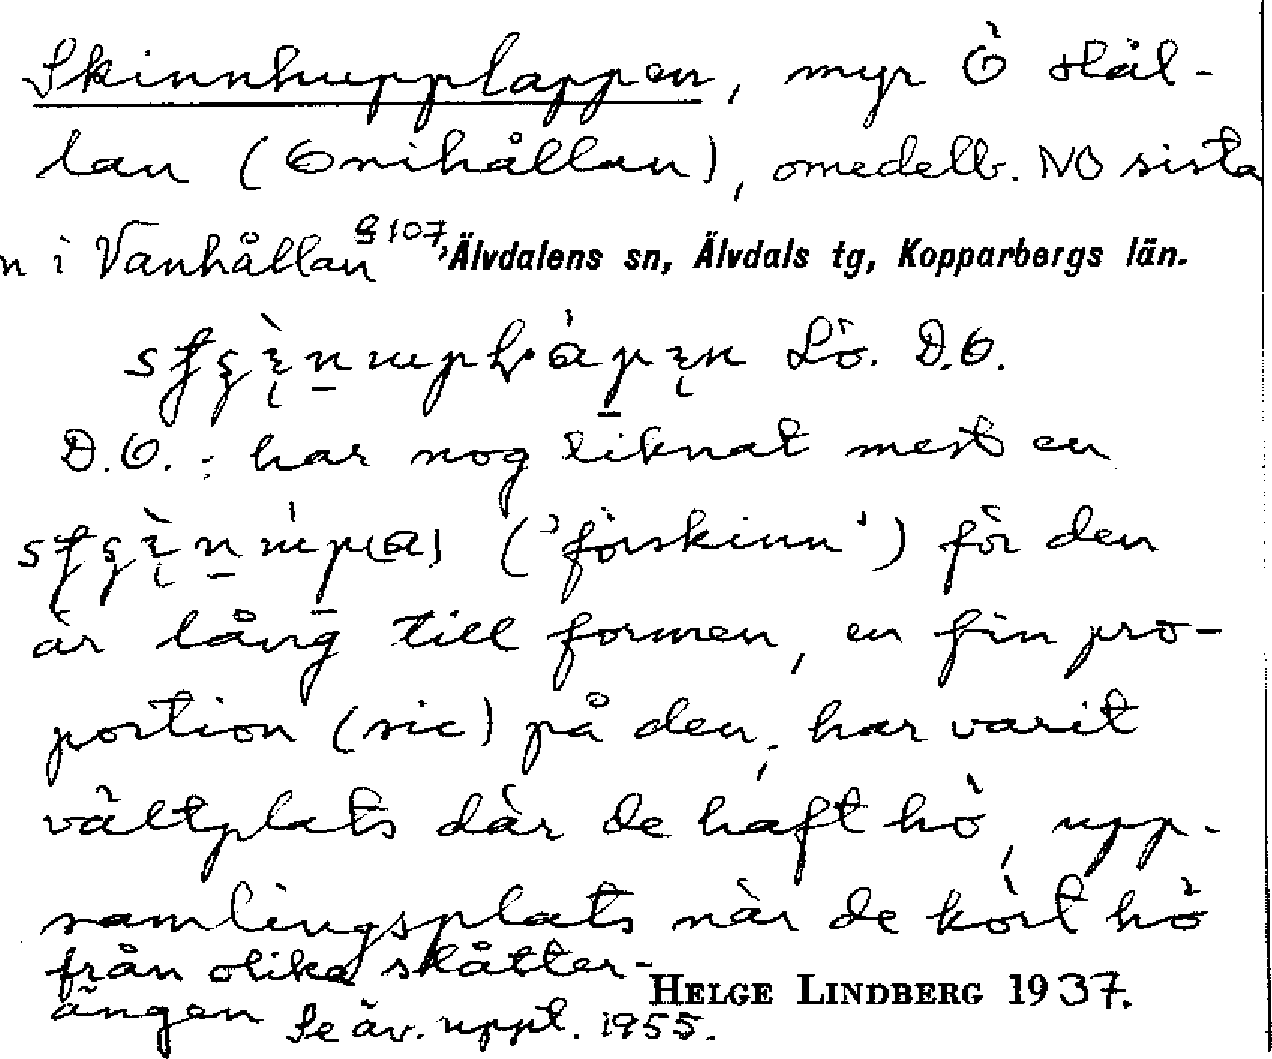 Skinnhupplappen, myr Ö Häl-
lan (Enihållan), omedelb. NO sista
n i Vanhållan § 107, Älvdalens sn, Älvdals tg, Kopparbergs län.
Lö. D.O.
D.O.: har nog liknat mest en
('förskinn') för den
är lång till formen, en fin pro-
portion (sic) på den; har varit
vältplats där de haft hö, upp-
samlingsplats när de kört hö
från olika slåtter-
ängen Se äv. uppt. 1955.
HELGE LINDBERG 1937.